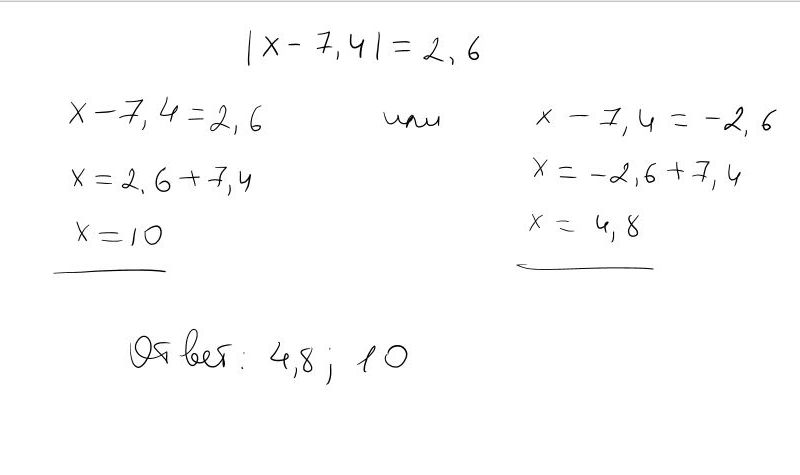 |x - 7,4| = 2,6
x - 7,4 = 2,6 или x - 7,4 = -2,6
x = 2,6 + 7,4 x = -2,6 + 7,4
x = 10 x = 4,8
Ответ: 4,8; 10